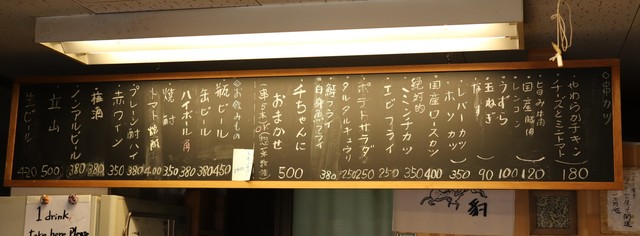 ○串カツ
・やわらかチキン
・チーズとミニトマト 180
・国産豚
・レンコン 120
・うずら 100
・玉ねぎ 90
・なす
・レバーカツ
・ホソカツ 350
・国産ロースカツ 400
絶対的
ミンチカツ 350
・エビフライ 250
・ポテトサラダ 250
・タルタルキュウリ 250
・鯛フライ
・白身魚フライ 380
・チちゃんに
おまかせ 500
○お飲みもの
・瓶ビール 450
・缶ビール 380
・ハイボール角 380
・焼酎 350
・トマト焼酎 400
・プレーン酎ハイ 380
・赤ワイン 350
・梅酒 380
・ノンアルビール 380
・立山 500
・生ビール 420
1 drink
take here Please
豹